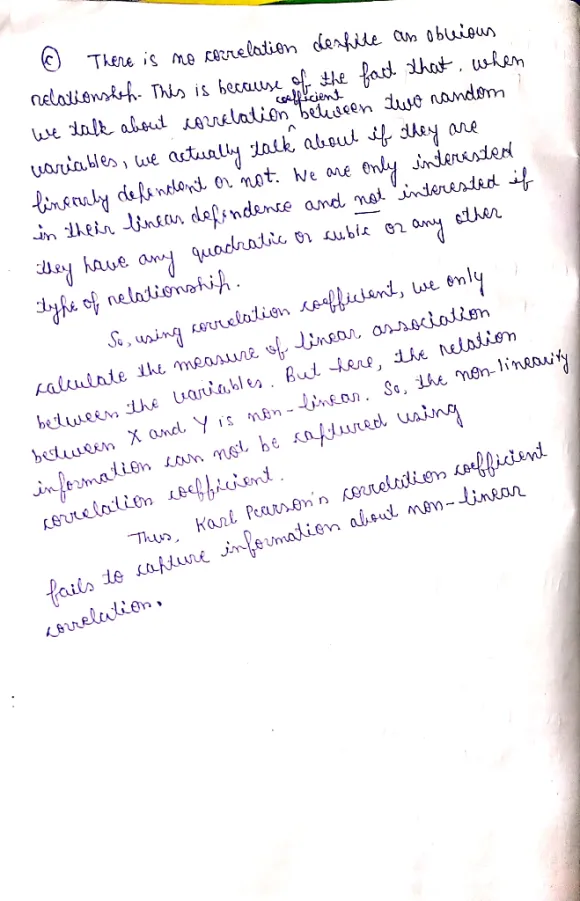 (c) There is no correlation despite an obvious
relationship. This is because of the fact that, when
we talk about correlation coefficient between two random
variables, we actually talk about if they are
linearly dependent or not. We are only interested
in their linear dependence and not interested if
they have any quadratic or cubic or any other
type of relationship.
So, using correlation coefficient, we only
calculate the measure of linear association
between the variables. But here, the relation
between X and Y is non-linear. So, the non-linearity
information can not be captured using
correlation coefficient.
Thus, Karl Pearson's correlation coefficient
fails to capture information about non-linear
correlation.